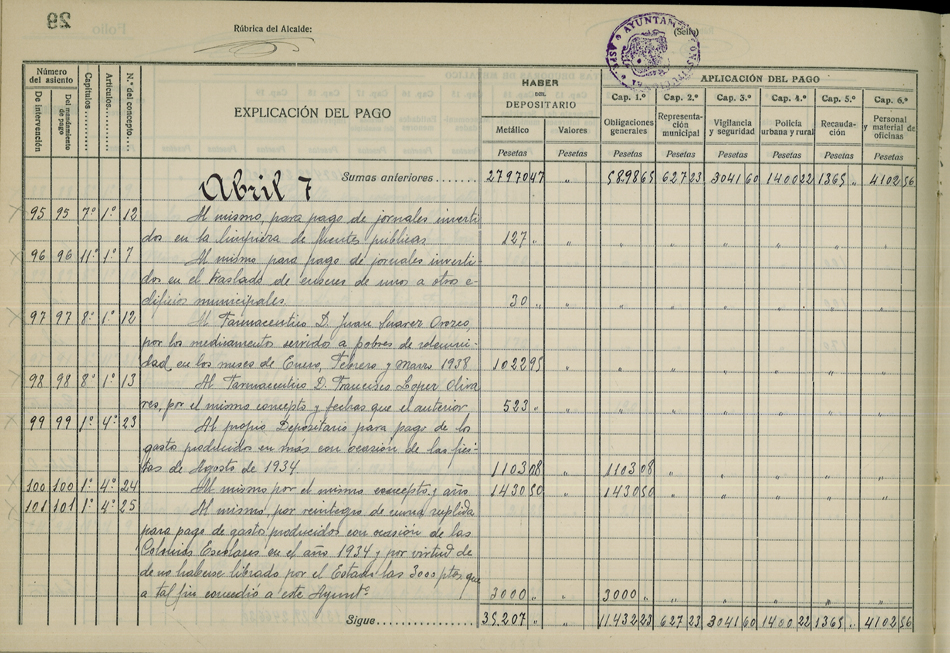 29
Rúbrica del Alcalde:
(Sello)
AYUNTAM
Número del asiento
De intervención
Del mandamiento de pago
Capítulos
Artículos
N.º del concepto
EXPLICACIÓN DEL PAGO
HABER DEL DEPOSITARIO
Metálico
Valores
Pesetas
Pesetas
APLICACIÓN DEL PAGO
Cap. 1.º Cap. 2.º Cap. 3.º Cap. 4.º Cap. 5.º Cap. 6.º
Obligaciones generales
Representación municipal
Vigilancia y seguridad
Policía urbana y rural
Recaudación
Personal y material de oficinas
Pesetas Pesetas Pesetas Pesetas Pesetas Pesetas
Abril 7 Sumas anteriores 27970 47 „ 5898 65 627 23 3041 60 1400 22 1365 „ 4102 56
95 95 7º 1º 12 Al mismo, para pago de jornales inverti
dos en la limpieza de fuentes públicas 127 „ „ „ „ „ „ „ „
96 96 11º 1º 7 Al mismo para pago de jornales inverti-
dos en el traslado de enseres de unos a otros e-
dificios municipales 30 „ „ „ „ „ „ „ „
97 97 8º 1º 12 Al Farmaceutico D. Juan Suarez Orozco,
por los medicamentos servidos a pobres de solemni-
dad, en los meses de Enero, Febrero y Marzo 1938 1022 95 „ „ „ „ „ „ „
98 98 8º 1º 13 Al Farmaceutico D. Francisco Lopez Oliva
res, por el mismo concepto y fechas que el anterior 523 „ „ „ „ „ „ „ „
99 99 1º 4º 23 Al propio Depositario para pago de los
gasto producidos en más con ocasión de las fies-
tas de Agosto de 1934. 1103 08 „ 1103 08 „ „ „ „ „
100 100 1º 4º 24 Al mismo por el mismo concepto y año 1430 50 „ 1430 50 „ „ „ „ „
101 101 1º 4º 25 Al mismo, por reintegro de suma suplida
para pago de gasto producidos con ocasión de las
Colonias Escolares en el año 1934 y por virtud de
de no haberse librado por el Estado las 3000 ptas que
a tal fin concedió a este Ayuntº 3000 „ „ 3000 „ „ „ „ „ „
Sigue 35.207 „ „ 11.432 23 627 23 3041 60 1400 22 1365 „ 4102 56